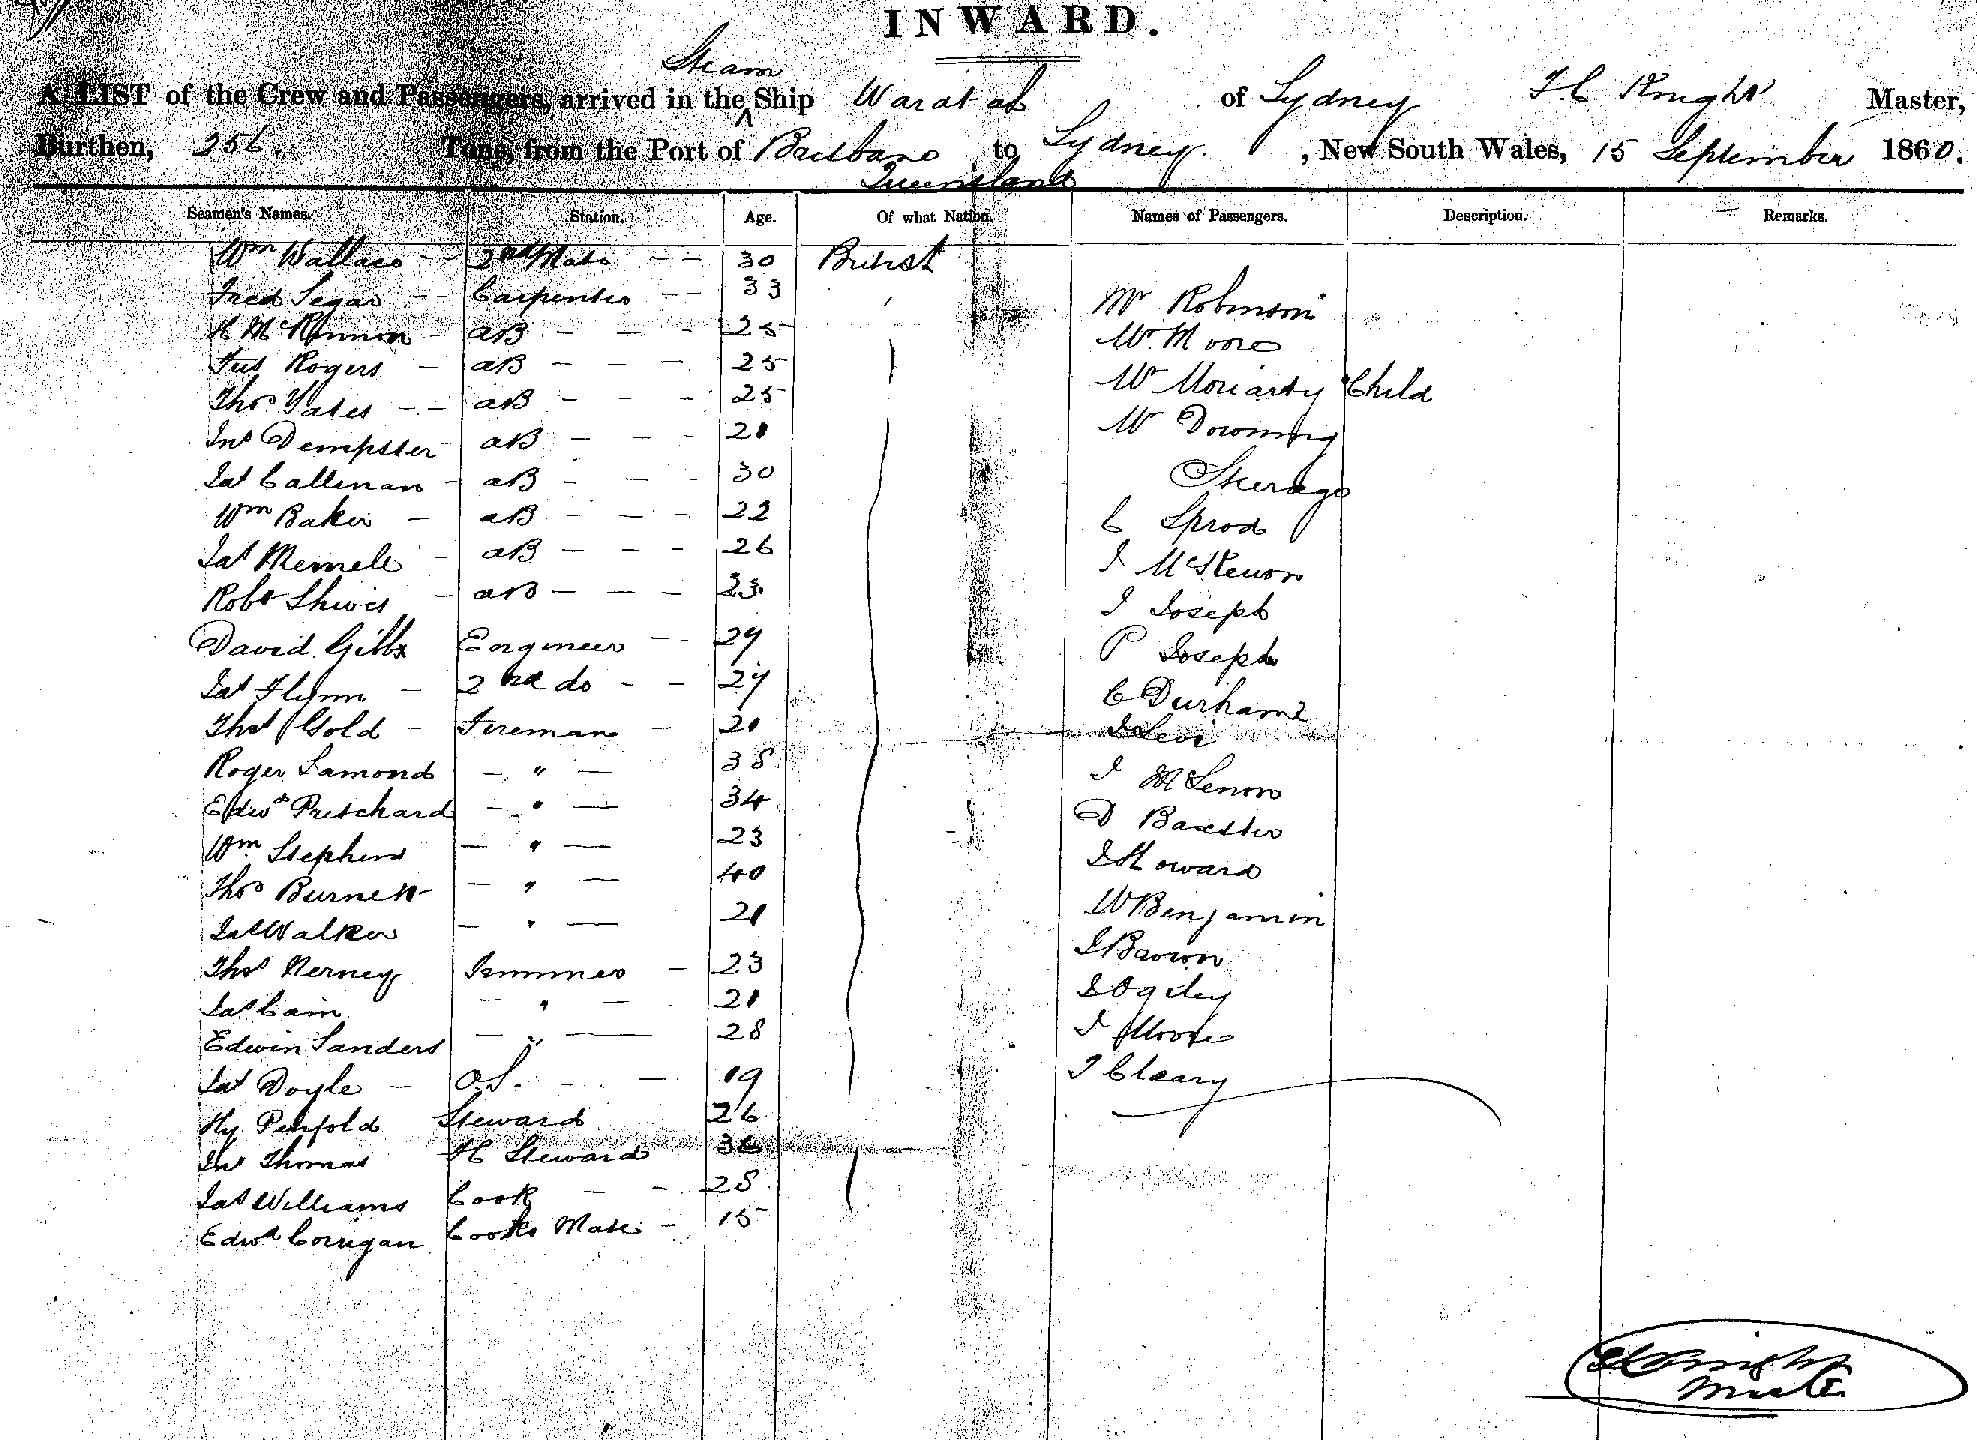 INWARD.
Steam
A LIST of the Crew and Passengers, arrived in the ^ Ship Waratah of Sydney Master,
Burthen, 256. Tons, from the Port of Brisbane to Sydney. , New South Wales, 15 September 1860.
Queensland
Seamen's Names. Station. Age. Of what Nation. Names of Passengers. Description. Remarks.
Wm Wallace - 2nd Mate - - 30 British
Fred Segar - Carpenter - - 33 Mr Robinson
aB - - - 25 W. Moore
Rogers - aB - - - 25 Moriarty & Child
Thos Yates - - aB - - - 25 Downing
Jno Dempster aB - - - 21
Jas Callinan - aB - - - 30
Wm Baker - aB - - - 22 C Sprod
Jas - aB - - - 26
Robt - aB - - - 23 J Joseph
David Gibbs Engineer - - 29 P Joseph
Jas Flynn - 2nd do - - 29 C Durham
Thos Gold - Fireman - 21 J Levi
Roger Lamond - " - 38
Edwd Pritchard - " - 34 D
Wm Stephens - " - 23 J Howard
Thos Burnett - " - 40 W Benjamin
Jas Walker - " - 21 J Brown
Thos Nerney Trimmer - 23
Jas Cain - " - 21 J Moore
Edwin Sanders - " - 28 J Cleary
Jas Doyle - O.S. - 19
Hy Penfold Steward 26
Jno Thomas Steward 36
Jas Williams Cook - - 28
Edwd Corrigan Cooks Mate - 15
Knight